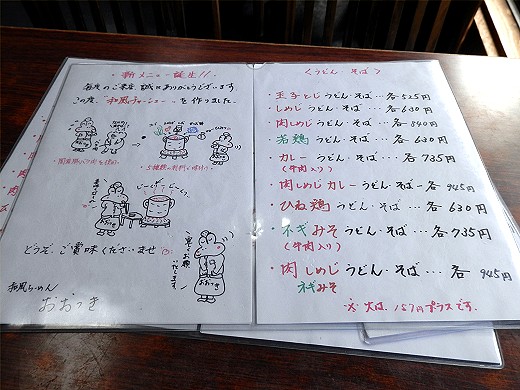 新メニュー誕生!!
毎度のご来店、誠にありがとうございます。
この度、"和風チャーシュー"を作りました。
じーっくり じーっくり
どうぞ、ご賞味くださいませ
宜しくお願いいたします
おおつき
和風らーめん
おおつき
〈うどん・そば〉
・玉子とじうどん・そば・・・各525円
・しめじうどん・そば・・・各630円
・肉しめじうどん・そば・・・各840円
・若鶏うどん・そば・・・各630円
・カレーうどん・そば・・・各735円
(牛肉入り)
・肉しめじカレーうどん・そば・・各945円
・ひね鶏うどん・そば・・・各630円
・ネギみそうどん・そば・・・各735円
(牛肉入り)
・肉しめじうどん・そば・・・各945円
ネギみそ
※大は、157円プラスです。